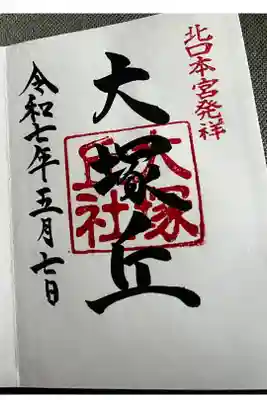 北口本宮発祥
大塚丘
大塚丘社
令和七年五月七日